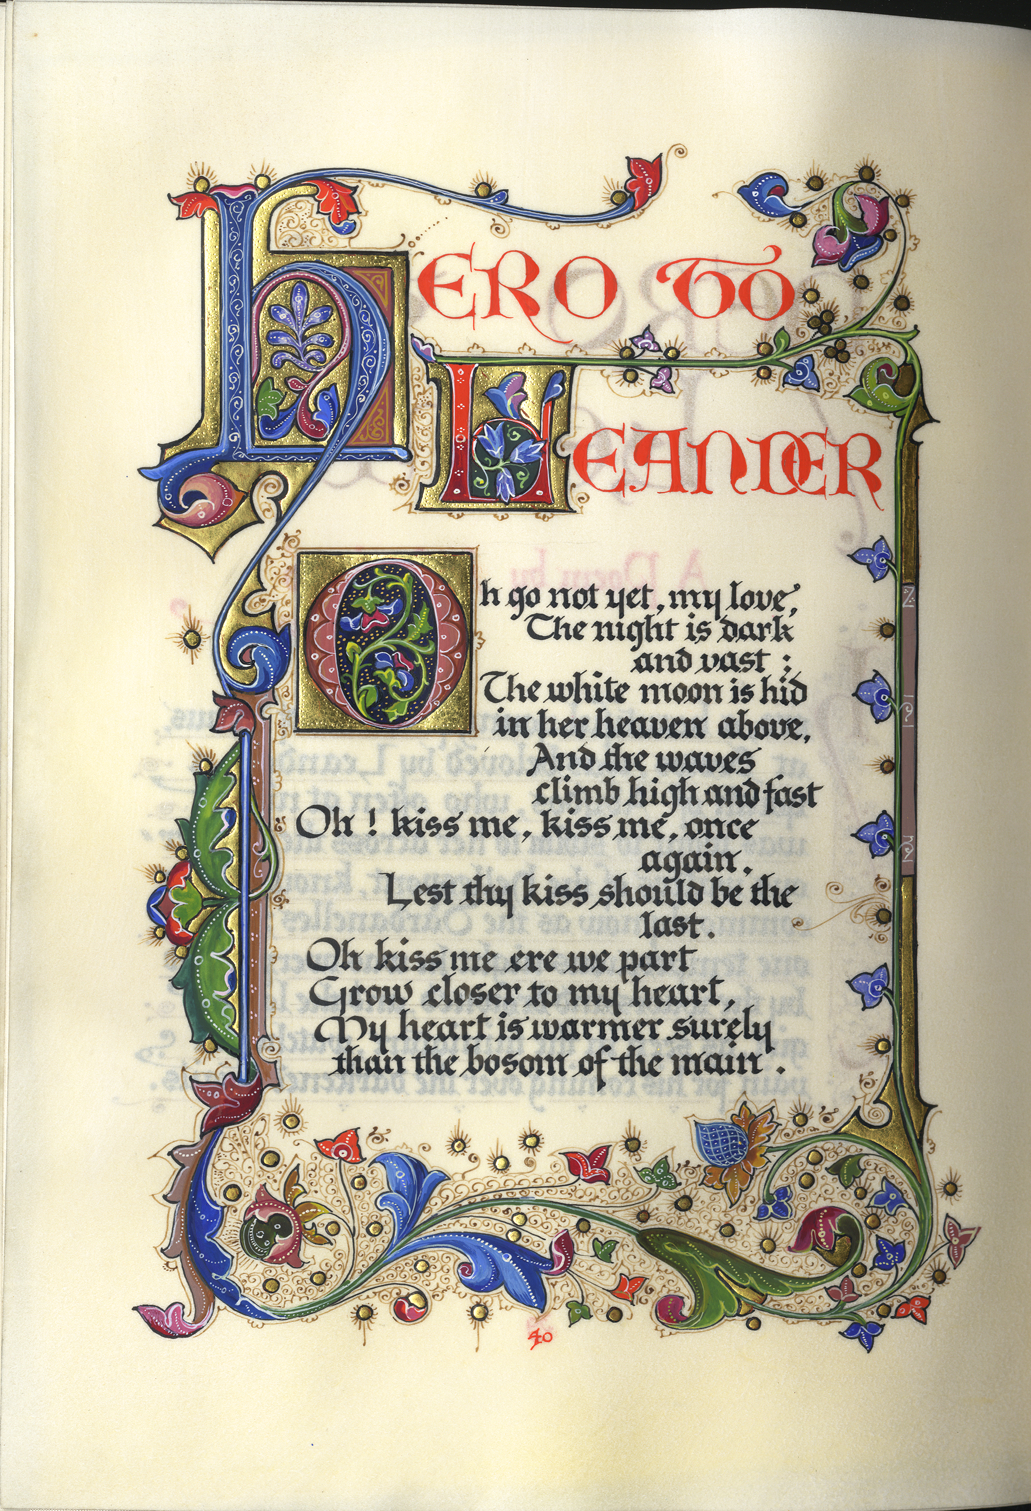 HERO TO
LEANDER
Oh go not yet, my love,
The night is dark
and vast ;
The white moon is hid
in her heaven above,
And the waves
climb high and fast
Oh ! kiss me, kiss me, once
again.
Lest thy kiss should be the
last.
Oh kiss me ere we part
Grow closer to my heart,
My heart is warmer surely
than the bosom of the main .
40